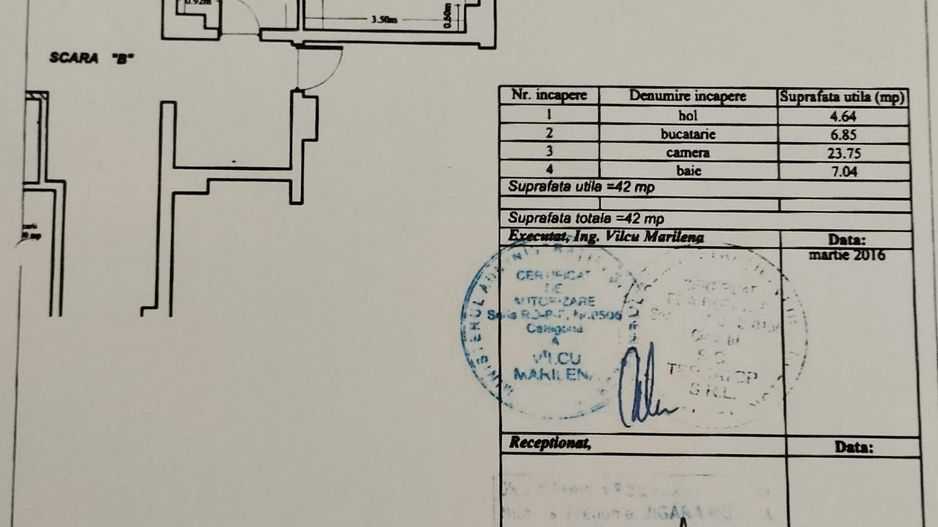 0.92m
3.50m
0.80m
SCARA "B"
Nr. incapere Denumire incapere Suprafata utila (mp)
1 hol 4.64
2 bucatarie 6.85
3 camera 23.75
4 baie 7.04
Suprafata utila =42 mp
Suprafata totala =42 mp
Executat, Ing. Vilcu Marilena Data:
martie 2016
CERTIFICAT
DE
AUTORIZARE
Categoria
A
VILCU
MARILENA
S.C.
S.R.L.
Receptionat, Data: